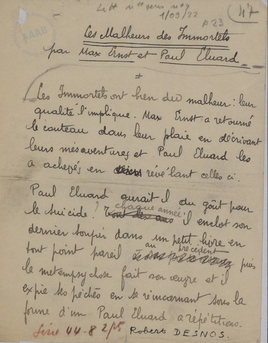 Litt nouv. série n° 7
1/09/22
p23
47
Les Malheurs des Immortels
par Max Ernst et Paul Eluard
Les Immortels ont bien du malheur : leur
qualité l'implique. Max Ernst a retourné
le couteau dans leur plaie en décrivant
leurs mésaventures et Paul Eluard les
a achevés en révélant celles ci
Paul Eluard aurait il du goût pour
le suicide ? chaque année il enclot son
dernier soupir dans un petit livre en
tout point pareil au précédent puis
la métempsychose fait son œuvre et il
expie les péchés en se réincarnant sous la
forme d'un Paul Eluard a répétitions.
Robert DESNOS.